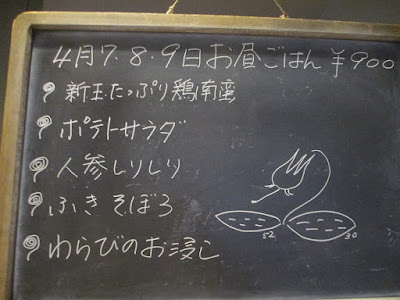 4月7.8.9日お昼ごはん ¥900
新玉たっぷり鶏南蛮
ポテトサラダ
人参しりしり
ふきそぼろ
わらびのお浸し
52 30